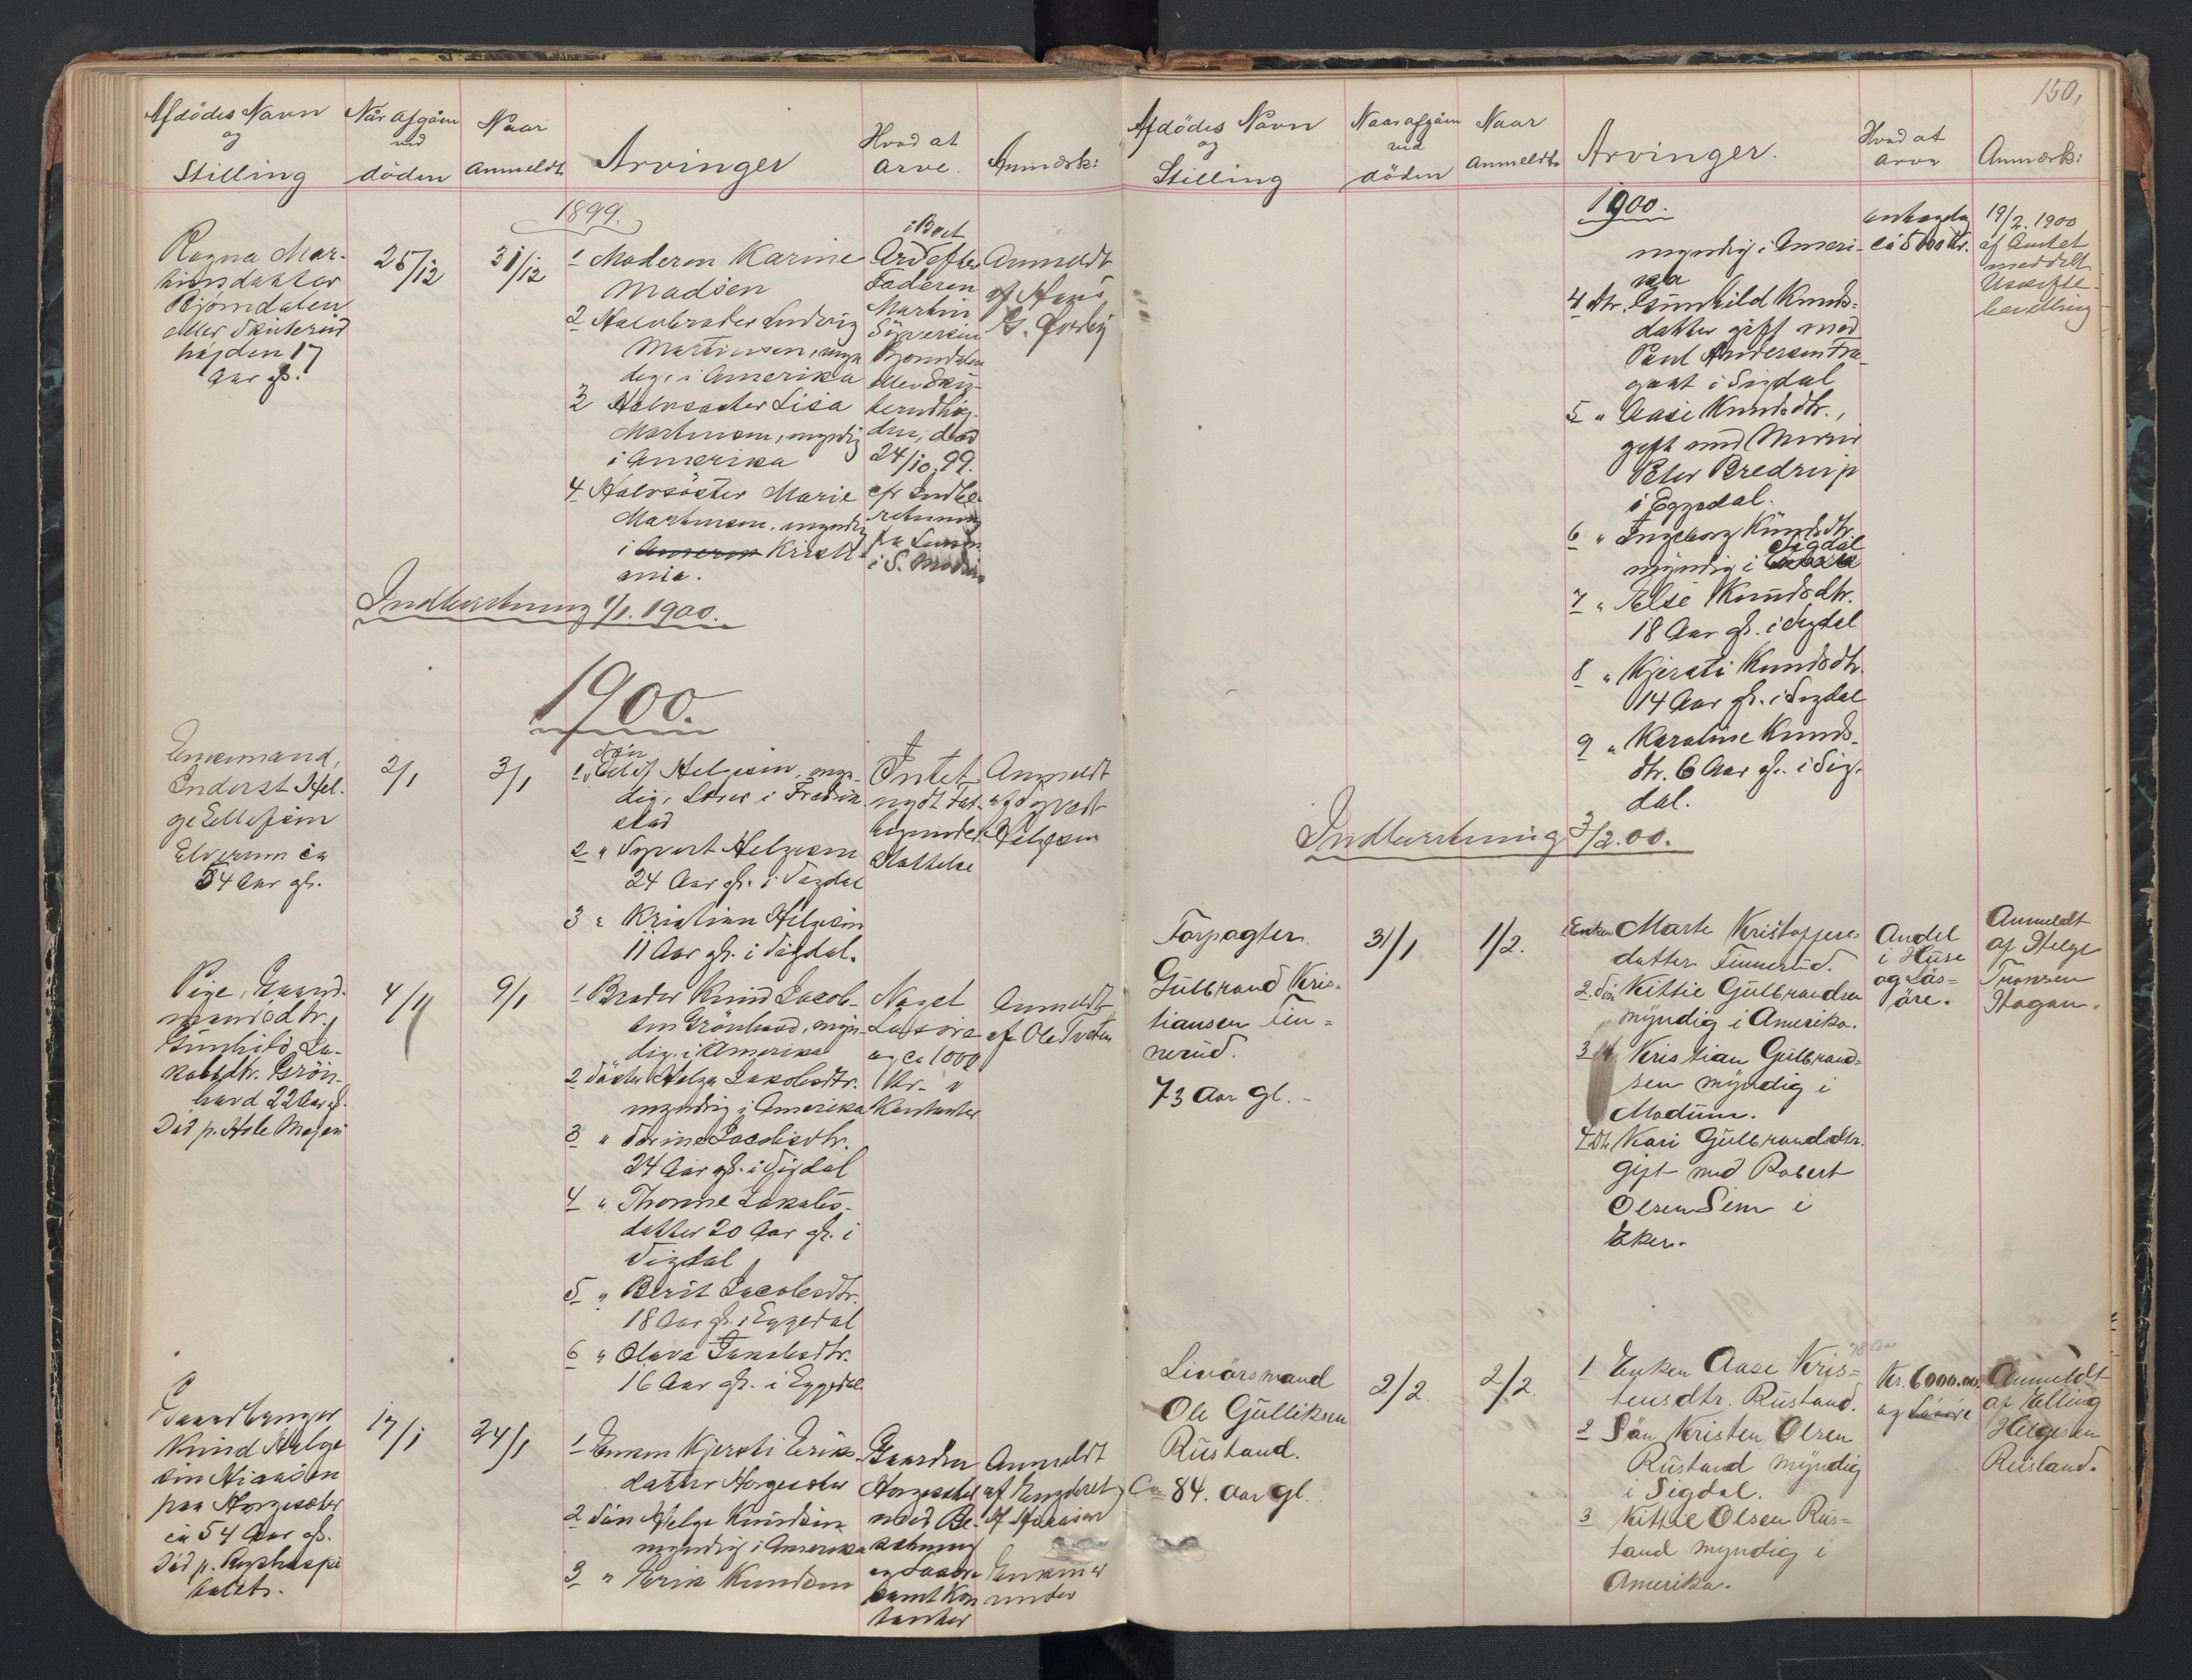 Afdödes Navn
og
Stilling
Når afgåen
ved
döden
Naar
anmeldt
Arvinger
Hvad at
arve.
Anmærk:
1899.
Ragna Mar-
tinsdatter
Bjørndalen
eller Skuterud
højden 17
Aar gl.
25/12
31/12
1 Moderen Karine
Madsen
2 Halvbroder Ludvig
Martinsen, myn
dig, i Amerika
3 Halvsøster Lisa
Martinsen, myndig
i Amerika
4 Halvsöster Marie
Martinsen, myndig
i Kristi
ania.
i Boet
Arv efter
Faderen
Martin
Bjørndalen
eller Sku-
terudhøj-
den, död
24/10.99.
cfr Indbe-
retning
fra Lensm.
i S. Modum
Anmeldt
af Hans
G.
Indberetning 1/1. 1900.
1900.
Enkemand,
Inderst Hel-
ge Ellefsen
Elverum ca
54 Aar gl.
2/1
3/1
Sön
1 Ellef Helgesen, myn-
dig, i Fredrik
stad
2 " Syvert Helgesen
24 Aar gl. i Sigdal
3 " Kristian Helgesen
11 Aar gl. i Sigdal.
Intet
nydt Fat-
tigunder-
stöttelse
Anmeldt
af Syvert
Helgesen
Pige, Gaard-
mandsdtr.,
Gunhild Ja-
kobsdtr. Grön-
hovd 22 Aar gl.
Död p. Hole Mejeri
4/1
9/1
1 Broder Knud Jacob-
sen Grönhovd, myn-
dig, i Amerika
2 Söster Helga Jakobsdtr.
myndig i Amerika
3 " Sørine Jacobsdtr.
24 Aar gl. i Sigdal
4 " Thorine Jakobs-
datter 20 Aar gl. i
Sigdal
5 " Berit Jacobsdtr.
18 Aar gl. i Eggedal
6 " Olava Jakobsdtr.
16 Aar gl. i Eggedal
Noget
Løsøre
og ca 1000
Kr. i
Kontanter
Anmeldt
af Ole Tveten
Gaardbruger
Knud Helge
sen Aiaasen
paa Horgesæter
ca 54 Aar gl.
Död p. Rigshospi
talet.
17/1
24/1
1 Enken Kjersti Eriks-
datter Horgesæter
2 Sön Helge Knudsen
myndig i Amerika
3 " Erik Knudsen
Gaarden
Horgesæter
med Be-
sætning
og Løsøre
samt Kon
tanter
Anmeldt
af Engebret
Enken er
under
150,
Afdödes Navn
og
Stilling
Naar afgåen
ved
döden
Naar
Anmeldt
Arvinger.
Hvad at
arve
Anmærk:
1900.
myndig i Ameri-
ka
4 dtr. Gunhild Knuds-
datter gift med
Paul Andersen Fra-
gaat i Sigdal
5 " Aase Knudsdtr.,
gift med Murer
Peter Bredrup
i Eggedal.
6 " Ingeborg Knudsdtr.
Sigdal
myndig i
7 " Else Knudsdtr.
18 Aar gl. i Sigdal
8 " Kjersti Knudsdtr.
14 Aar gl. i Sigdal
9 " Karoline Knuds-
dtr. 6 Aar gl. i Sig-
dal.
ca 5000 Kr.
19/2. 1900
af Amtet
meddelt
Uskifte-
bevilling
Indberetning 3/2.00.
Forpagter
Gulbrand Kris-
tiansen Fin-
nerud.
73 Aar gl. -
31/1
1/2.
1 Enken Marte Kristoffers-
datter Finnerud.
2. Sön Kittie Gulbrandsen
myndig i Amerika.
3 " Kristian Gulbrand-
sen myndig i
Modum.
4. Dtr. Kari Gulbrandsdtr.
gift med Robert
Olsen Sem i
Eker.
Andel
i Huse
og Lös-
öre.
Anmeldt
af Helge
Tronsen
Hagan.
Livörsmand
Ole Gulliksen
Rustand.
Ca 84. Aar gl.
2/2.
2/2.
78 Aar
1 Enken Aase Kris-
tensdtr. Rustand.
2 Sön Kristen Olsen
Rustand myndig
i Sigdal.
3 Kittil Olsen Rus-
tand myndig i
Amerika.
Kr. 6000.00.
og Lösöre
Anmeldt
af Elling
Helgesen
Rusland.